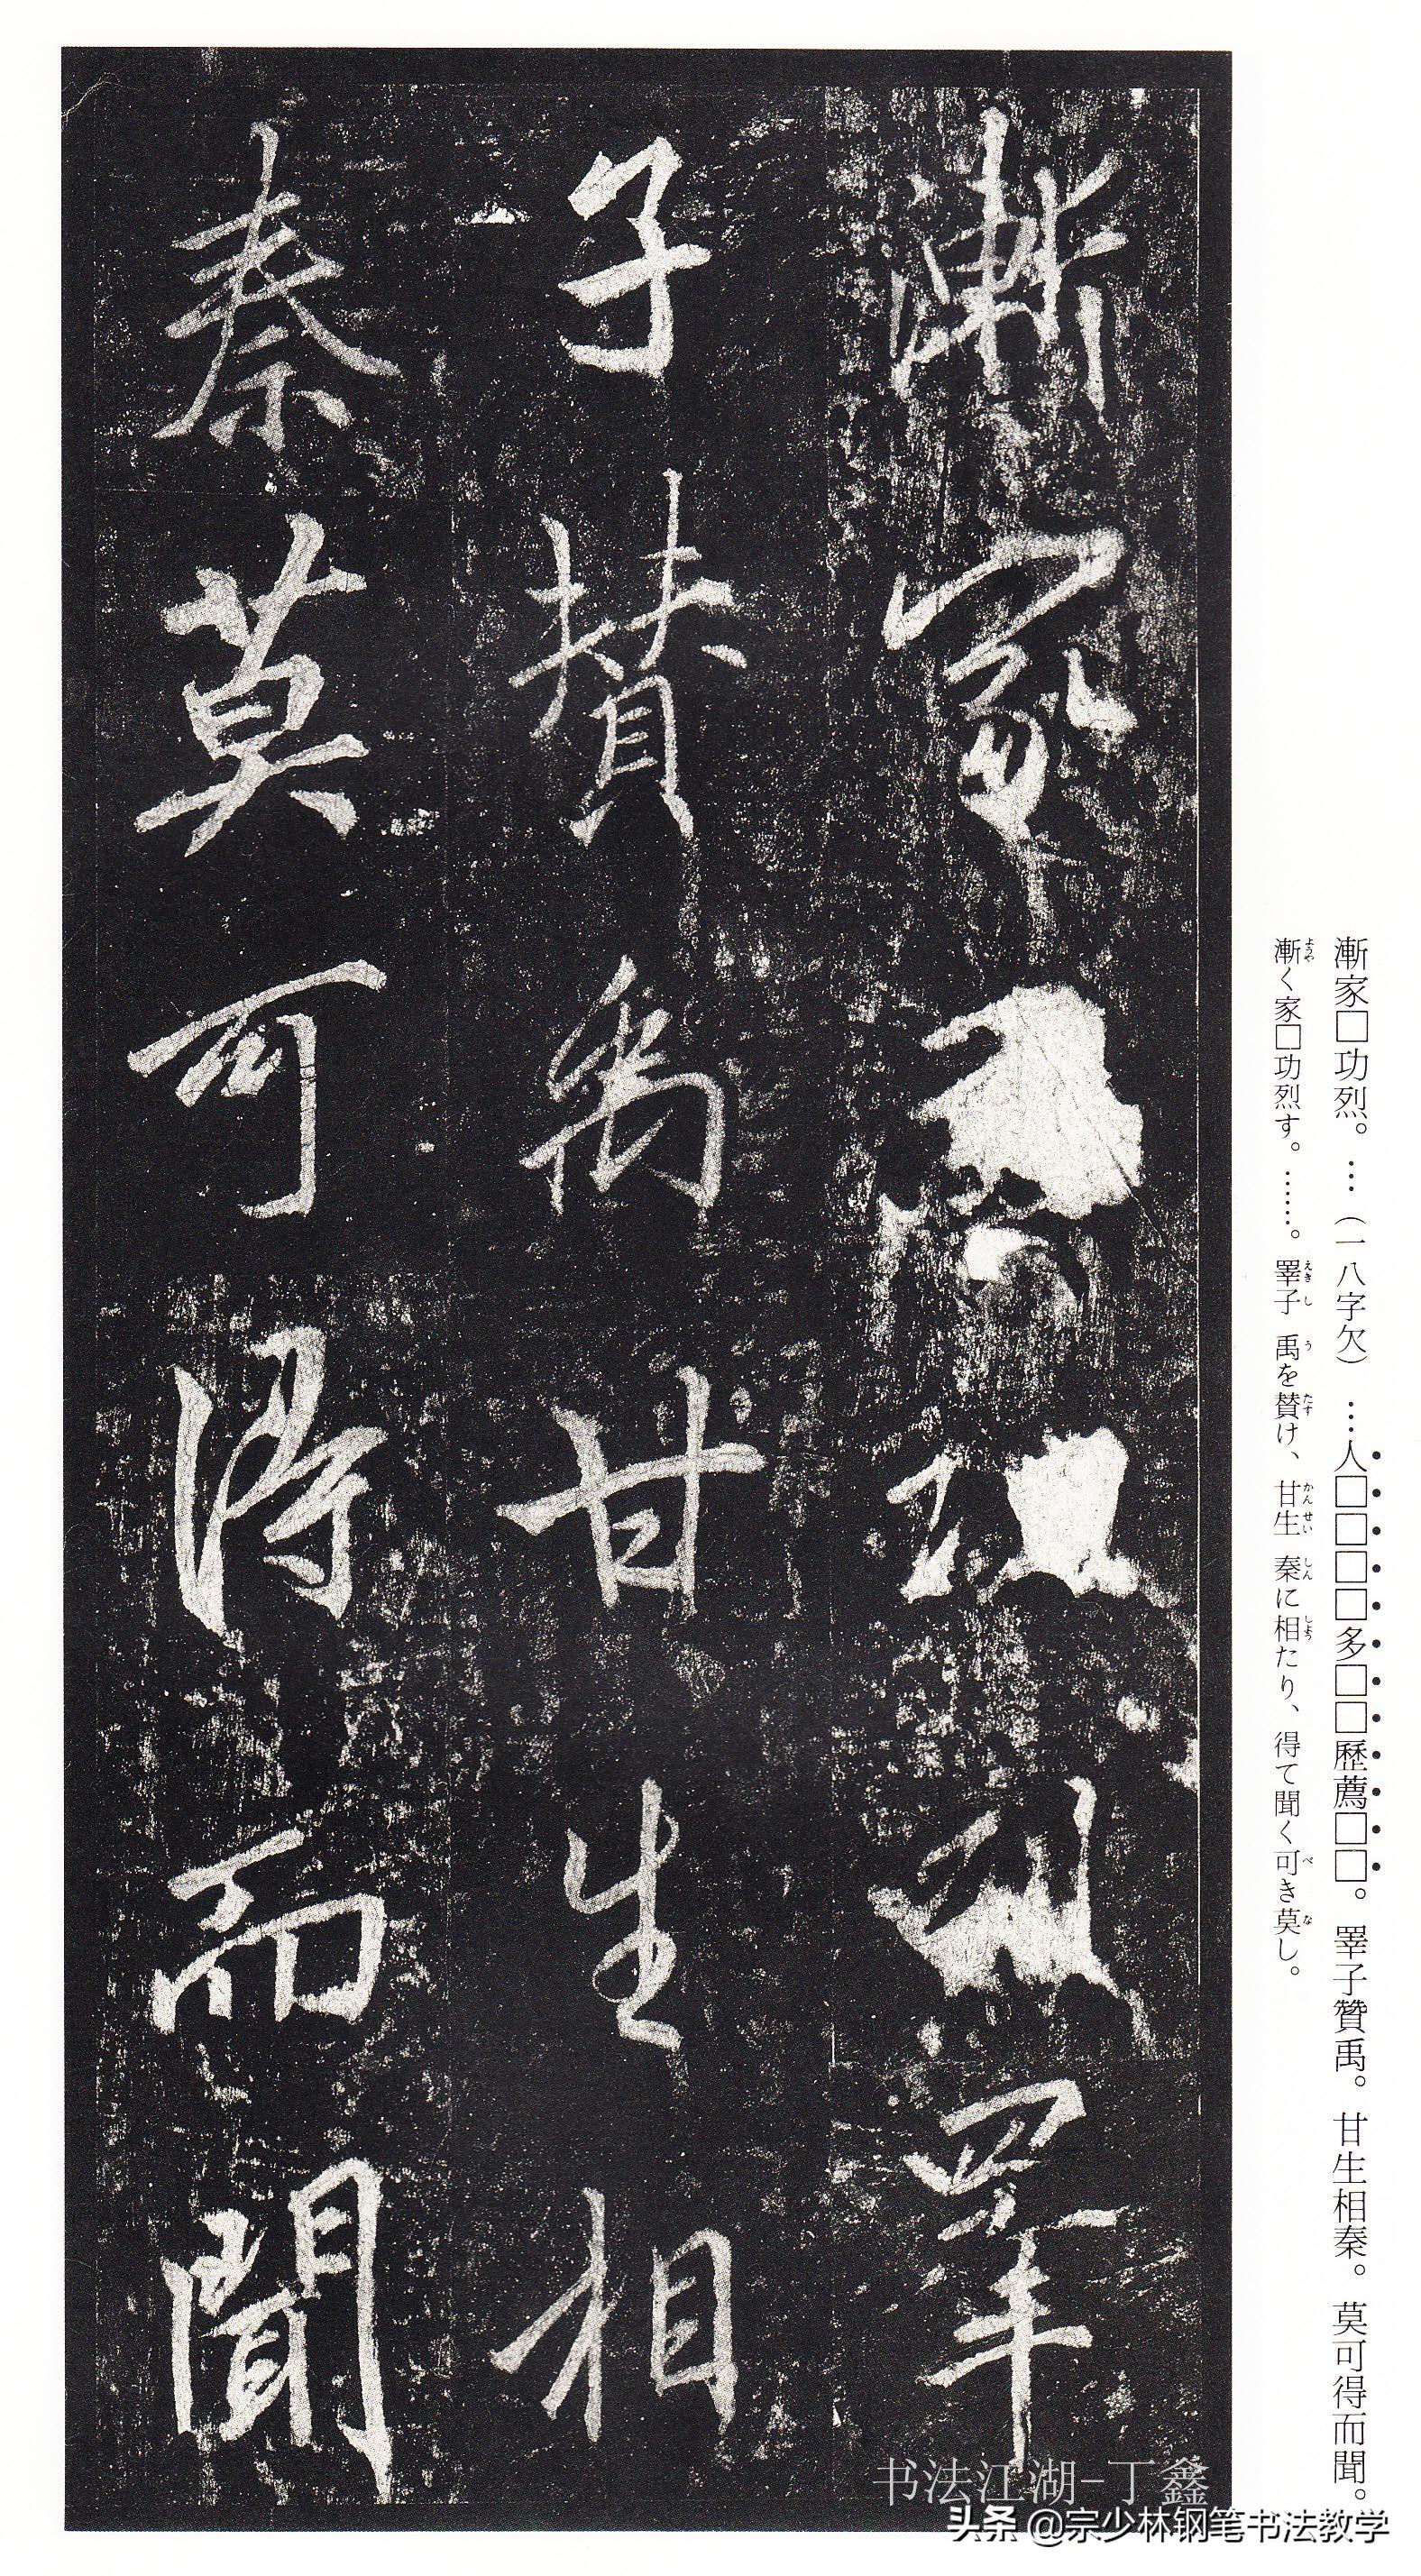 漸家□功烈。…（一八字欠）…人□□□□多□□歷薦□□。睪子贊禹。甘生相秦。莫可得而聞。
漸く家□功烈す。……。睪子 禹を賛け、甘生 秦に相たり、得て聞く可き莫し。
漸家功烈睪
子贊禹甘生相
秦莫可得而聞
书法江湖-丁鑫
头条 @宗少林钢笔书法教学